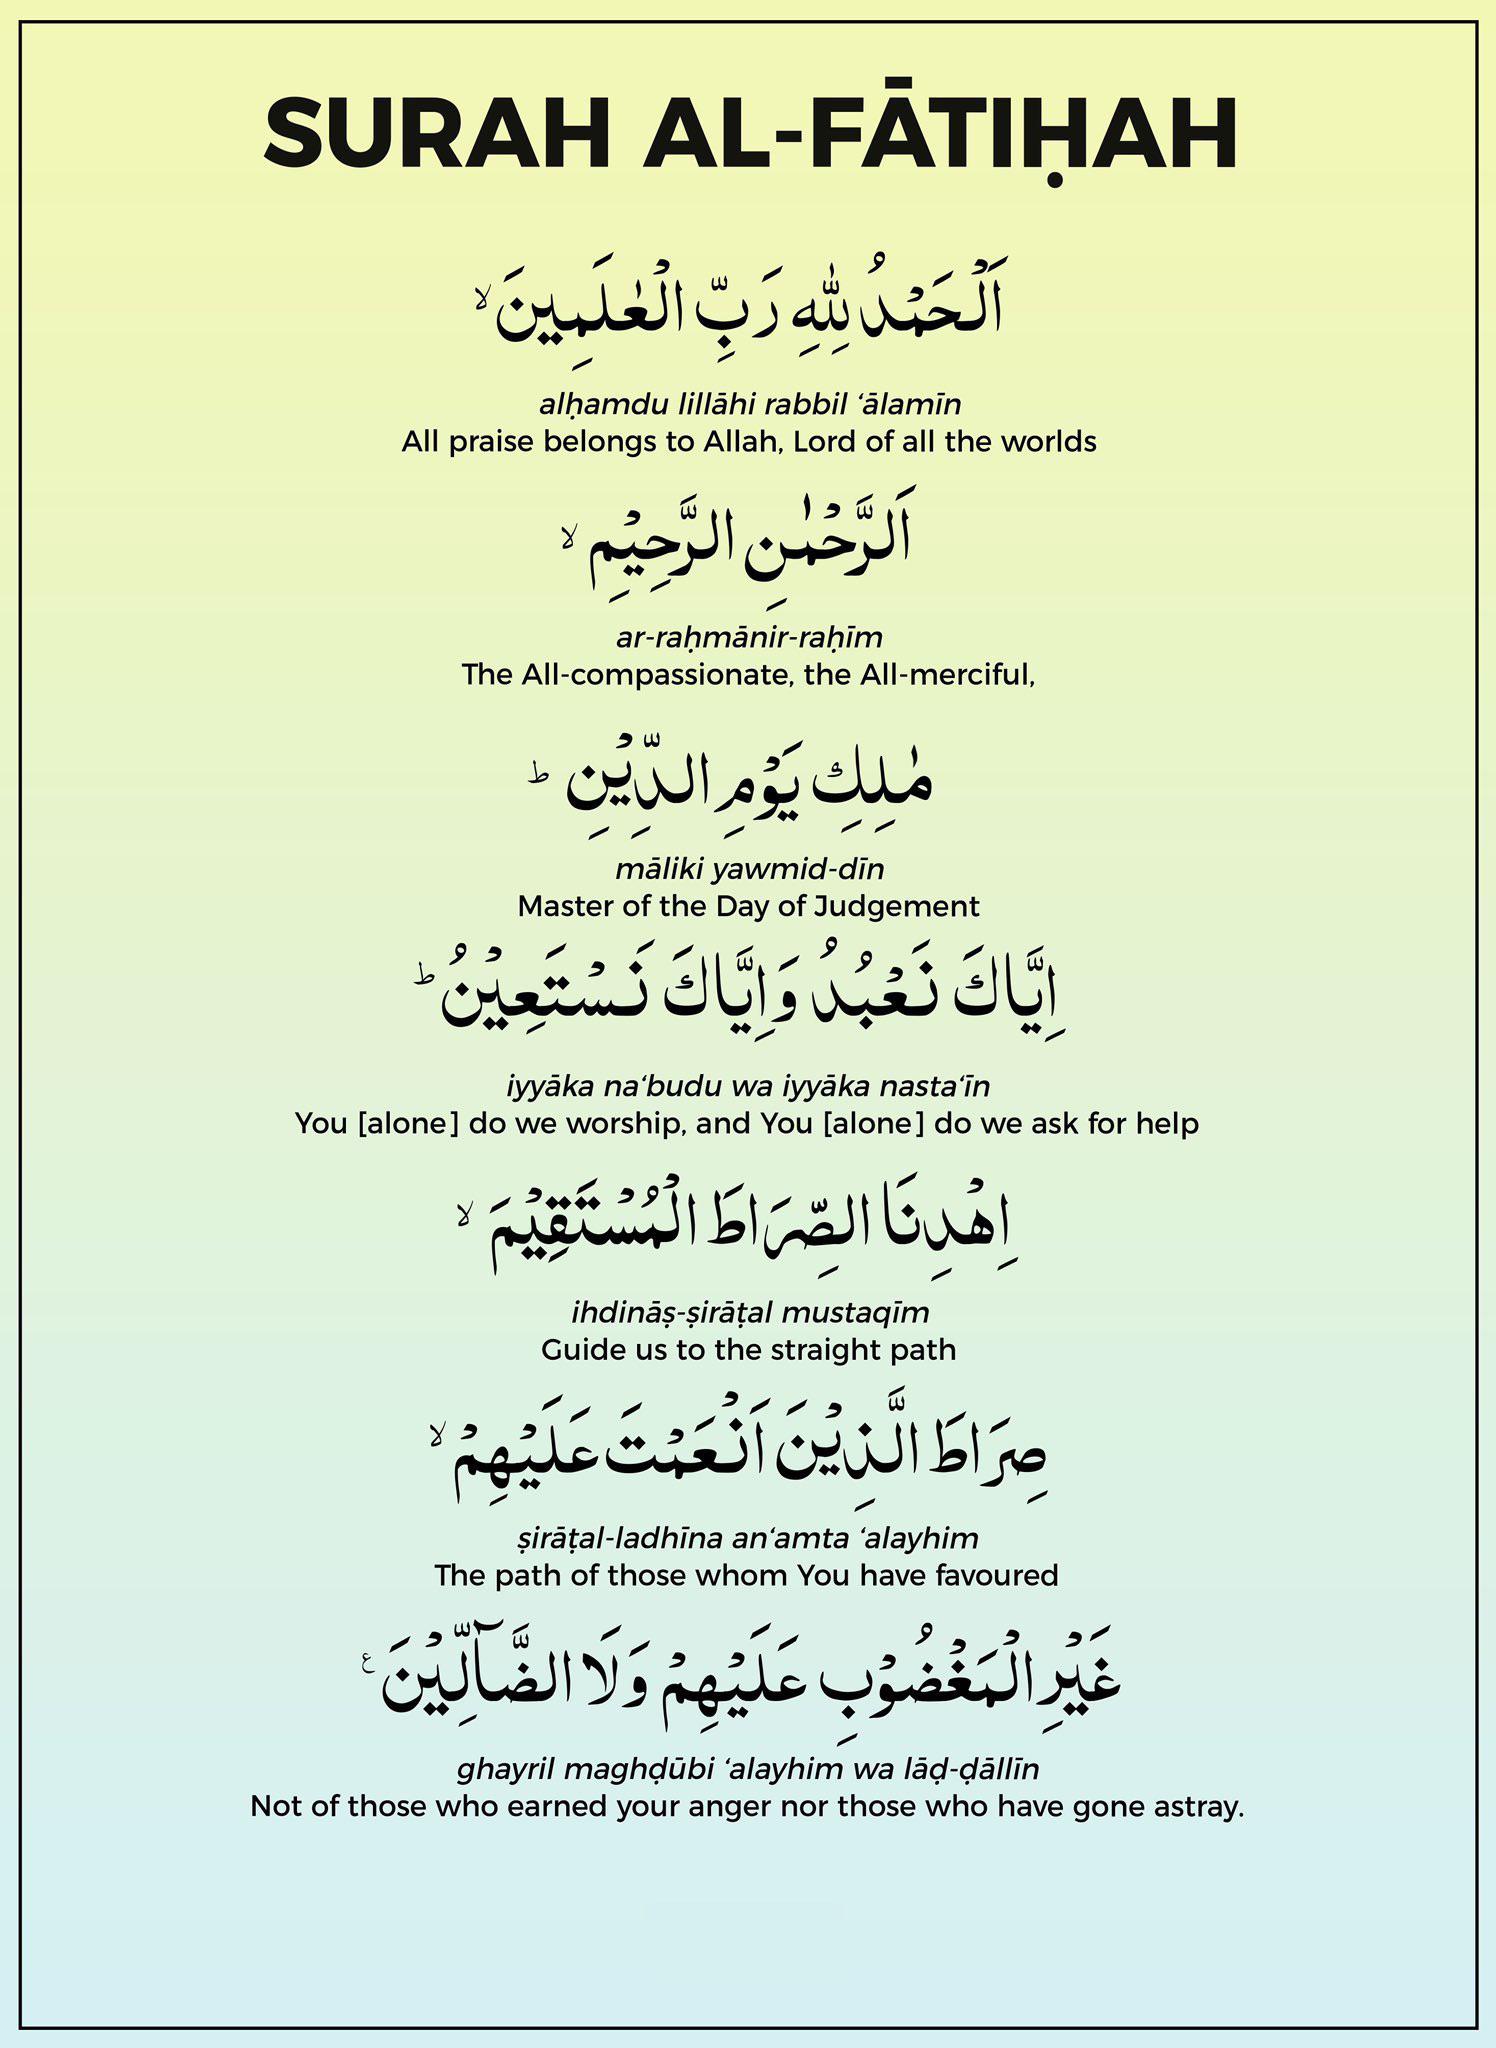 SURAH AL-FĀTIḤAH
اَلْحَمْدُ لِلّٰهِ رَبِّ الْعٰلَمِينَ ۙ
alḥamdu lillāhi rabbil ‘ālamīn
All praise belongs to Allah, Lord of all the worlds
اَلرَّحْمٰنِ الرَّحِيْمِ ۙ
ar-raḥmānir-raḥīm
The All-compassionate, the All-merciful,
مٰلِكِ يَوْمِ الدِّيْنِ ؕ
māliki yawmid-dīn
Master of the Day of Judgement
اِيَّاكَ نَعْبُدُ وَاِيَّاكَ نَسْتَعِيْنُ ؕ
iyyāka na‘budu wa iyyāka nasta‘īn
You [alone] do we worship, and You [alone] do we ask for help
اِهْدِنَا الصِّرَاطَ الْمُسْتَقِيْمَ ۙ
ihdināṣ-ṣirāṭal mustaqīm
Guide us to the straight path
صِرَاطَ الَّذِيْنَ اَنْعَمْتَ عَلَيْهِمْ ۙ
ṣirāṭal-ladhīna an‘amta ‘alayhim
The path of those whom You have favoured
غَيْرِ الْمَغْضُوْبِ عَلَيْهِمْ وَلَا الضَّآلِّيْنَ ع
ghayril maghḍūbi ‘alayhim wa lāḍ-ḍāllīn
Not of those who earned your anger nor those who have gone astray.